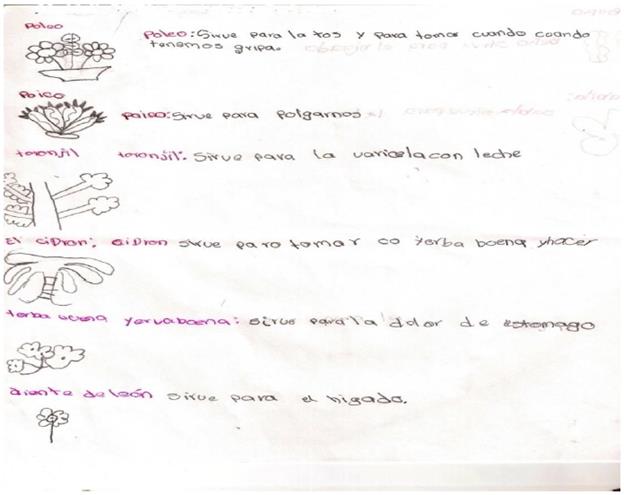 Poleo
Poleo: Sirve para la tos y para tomar cuando cuando
tenemos gripa.
Paico
paico: sirve para polgarnos
toronjil toronjil: Sirve para la varicela con leche
El cidron: cidron sirve para tomar co yerba buena yhacer
yerba buena yervabaena: sirve para la dolor de estomago
diente de león sirve para el higado.